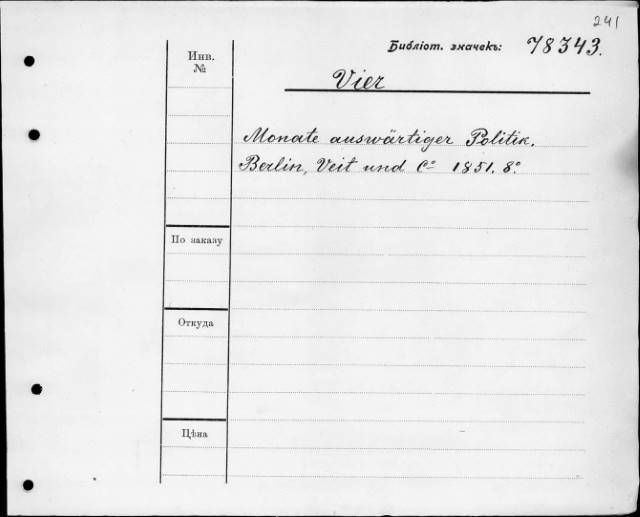 241
Библіот. значекъ: 78343.
Инв.
№
Vier
Monate auswärtiger Politik.
Berlin, Veit und Co 1851. 8o.
По заказу
Откуда
Цѣна